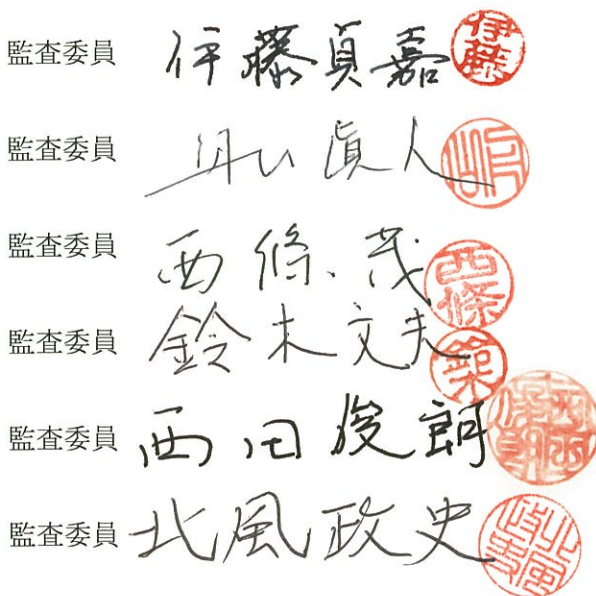 監査委員 伊藤貞嘉 伊藤
監査委員 眞人
監査委員 西條 茂 西條
監査委員 鈴木文夫
監査委員 西田俊朗
監査委員 北風政史 北風政史